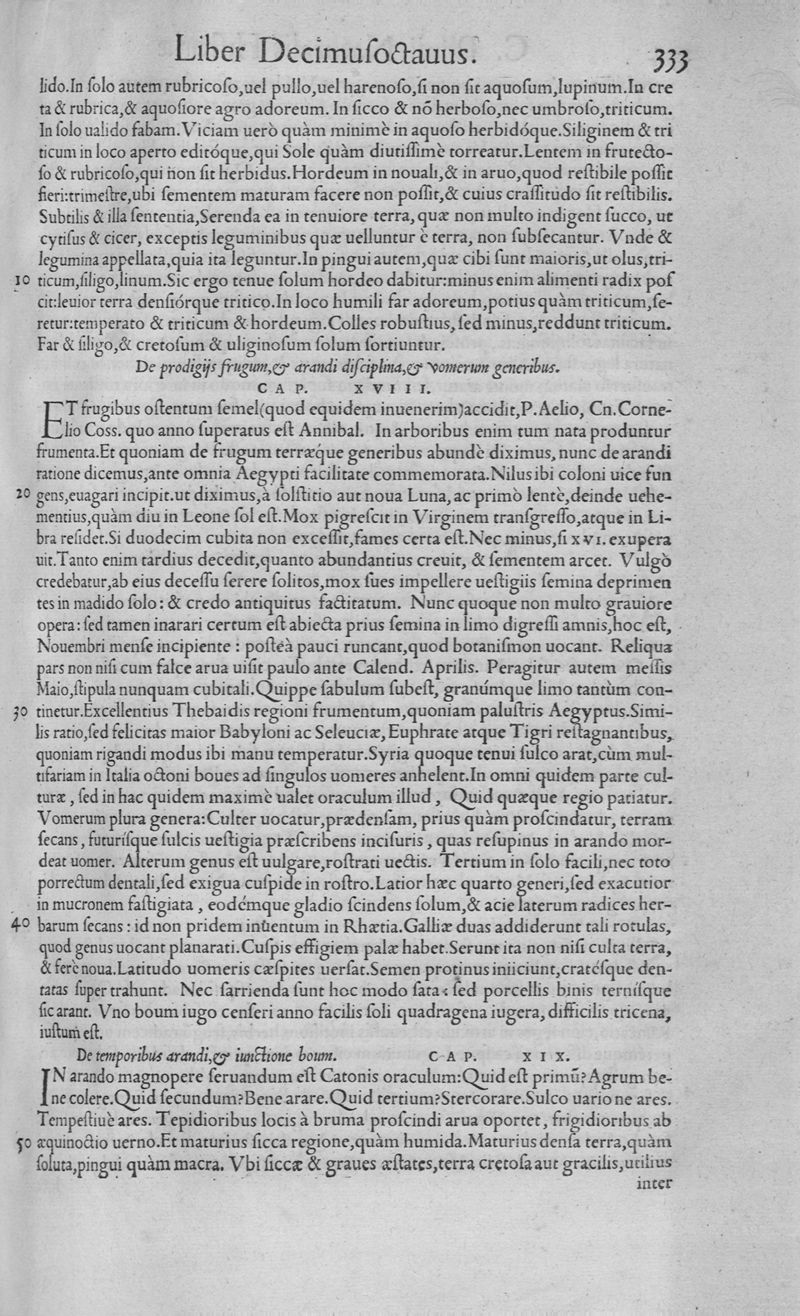 Liber Decimuſoctauus. 333
lido.In ſolo autem rubricoſo,uel pullo,uel harenoſo,ſi non ſit aquoſum,lupinum.In cre
ta & rubrica,& aquoſiore agro adoreum. In ſicco & nõ herboſo,nec umbroſo,triticum.
In ſolo ualido fabam.Viciam uerò quàm minimè in aquoſo herbidóque.Siliginem & tri
ticum in loco aperto editóque,qui Sole quàm diutiſſimè torreatur.Lentem in frutecto-
ſo & rubricoſo,qui non ſit herbidus.Hordeum in nouali,& in aruo,quod reſtibile poſſit
fieri:trimeſtre,ubi ſementem maturam facere non poſſit,& cuius craſſitudo ſit reſtibilis.
Subtilis & illa ſententia,Serenda ea in tenuiore terra,quæ non multo indigent ſucco, ut
cytiſus & cicer, exceptis leguminibus quæ uelluntur è terra, non ſubſecantur. Vnde &
legumina appellata,quia ita leguntur.In pingui autem,quæ cibi ſunt maioris,ut olus,tri-
10 ticum,ſiligo,linum.Sic ergo tenue ſolum hordeo dabitur:minus enim alimenti radix poſ
cit:leuior terra denſiórque tritico.In loco humili far adoreum,potius quàm triticum,ſe-
retur:temperato & triticum & hordeum.Colles robuſtius, ſed minus,reddunt triticum.
Far & ſiligo,& cretoſum & uliginoſum ſolum ſortiuntur.
De prodigijs frugum,& arandi diſciplina,& vomerum generibus.
CAP. XVIII.
ET frugibus oſtentum ſemel(quod equidem inuenerim)accidit,P.Aelio, Cn.Corne-
lio Coss. quo anno ſuperatus eſt Annibal. In arboribus enim tum nata produntur
frumenta.Et quoniam de frugum terrǽque generibus abundè diximus, nunc de arandi
ratione dicemus,ante omnia Aegypti facilitate commemorata.Nilus ibi coloni uice fun
20 gens,euagari incipit.ut diximus,à ſolſtitio aut noua Luna, ac primò lentè,deinde uehe-
mentius,quàm diu in Leone ſol eſt.Mox pigreſcit in Virginem tranſgreſſo,atque in Li-
bra reſidet.Si duodecim cubita non exceſſit,fames certa eſt.Nec minus,ſi xvi. exupera
uit.Tanto enim tardius decedit,quanto abundantius creuit, & ſementem arcet. Vulgò
credebatur,ab eius deceſſu ſerere ſolitos,mox ſues impellere ueſtigiis ſemina deprimen
tes in madido ſolo: & credo antiquitus factitatum. Nunc quoque non multo grauiore
opera: ſed tamen inarari certum eſt abiecta prius ſemina in limo digreſſi amnis,hoc eſt,
Nouembri menſe incipiente : poſteà pauci runcant,quod botaniſmon uocant. Reliqua
pars non niſi cum falce arua uiſit paulo ante Calend. Aprilis. Peragitur autem meſſis
Maio,ſtipula nunquam cubitali.Quippe ſabulum ſubeſt, granúmque limo tantùm con-
30 tinetur.Excellentius Thebaidis regioni frumentum,quoniam paluſtris Aegyptus.Simi-
lis ratio,ſed felicitas maior Babyloni ac Seleuciæ, Euphrate atque Tigri reſtagnantibus,
quoniam rigandi modus ibi manu temperatur.Syria quoque tenui ſulco arat,cùm mul-
tifariam in Italia octoni boues ad ſingulos uomeres anhelent.In omni quidem parte cul-
turæ , ſed in hac quidem maximè ualet oraculum illud , Quid quæque regio patiatur.
Vomerum plura genera:Culter uocatur,prædenſam, prius quàm proſcindatur, terram
ſecans , futuríſque ſulcis ueſtigia præſcribens inciſuris , quas reſupinus in arando mor-
deat uomer. Alterum genus eſt uulgare,roſtrati uectis. Tertium in ſolo facili,nec toto
porrectum dentali,ſed exigua cuſpide in roſtro.Latior hæc quarto generi,ſed exacutior
in mucronem faſtigiata , eodémque gladio ſcindens ſolum,& acie laterum radices her-
40 barum ſecans : id non pridem inuentum in Rhætia.Galliæ duas addiderunt tali rotulas,
quod genus uocant planarati.Cuſpis effigiem palæ habet.Serunt ita non niſi culta terra,
& ferè noua.Latitudo uomeris cæſpites uerſat.Semen protinus iniiciunt,cratéſque den-
tatas ſuper trahunt. Nec ſarrienda ſunt hoc modo ſata : ſed porcellis binis terníſque
ſic arant. Vno boum iugo cenſeri anno facilis ſoli quadragena iugera, difficilis tricena,
iuſtum eſt.
De temporibus arandi,& iunctione boum. CAP. XIX.
IN arando magnopere ſeruandum eſt Catonis oraculum:Quid eſt primũ?Agrum be-
ne colere.Quid ſecundum?Bene arare.Quid tertium?Stercorare.Sulco uario ne ares.
Tempeſtiuè ares. Tepidioribus locis à bruma proſcindi arua oportet, frigidioribus ab
50 æquinoctio uerno.Et maturius ſicca regione,quàm humida.Maturius denſa terra,quàm
ſoluta,pingui quàm macra. Vbi ſiccæ & graues æſtates,terra cretoſa aut gracilis,utilius
inter